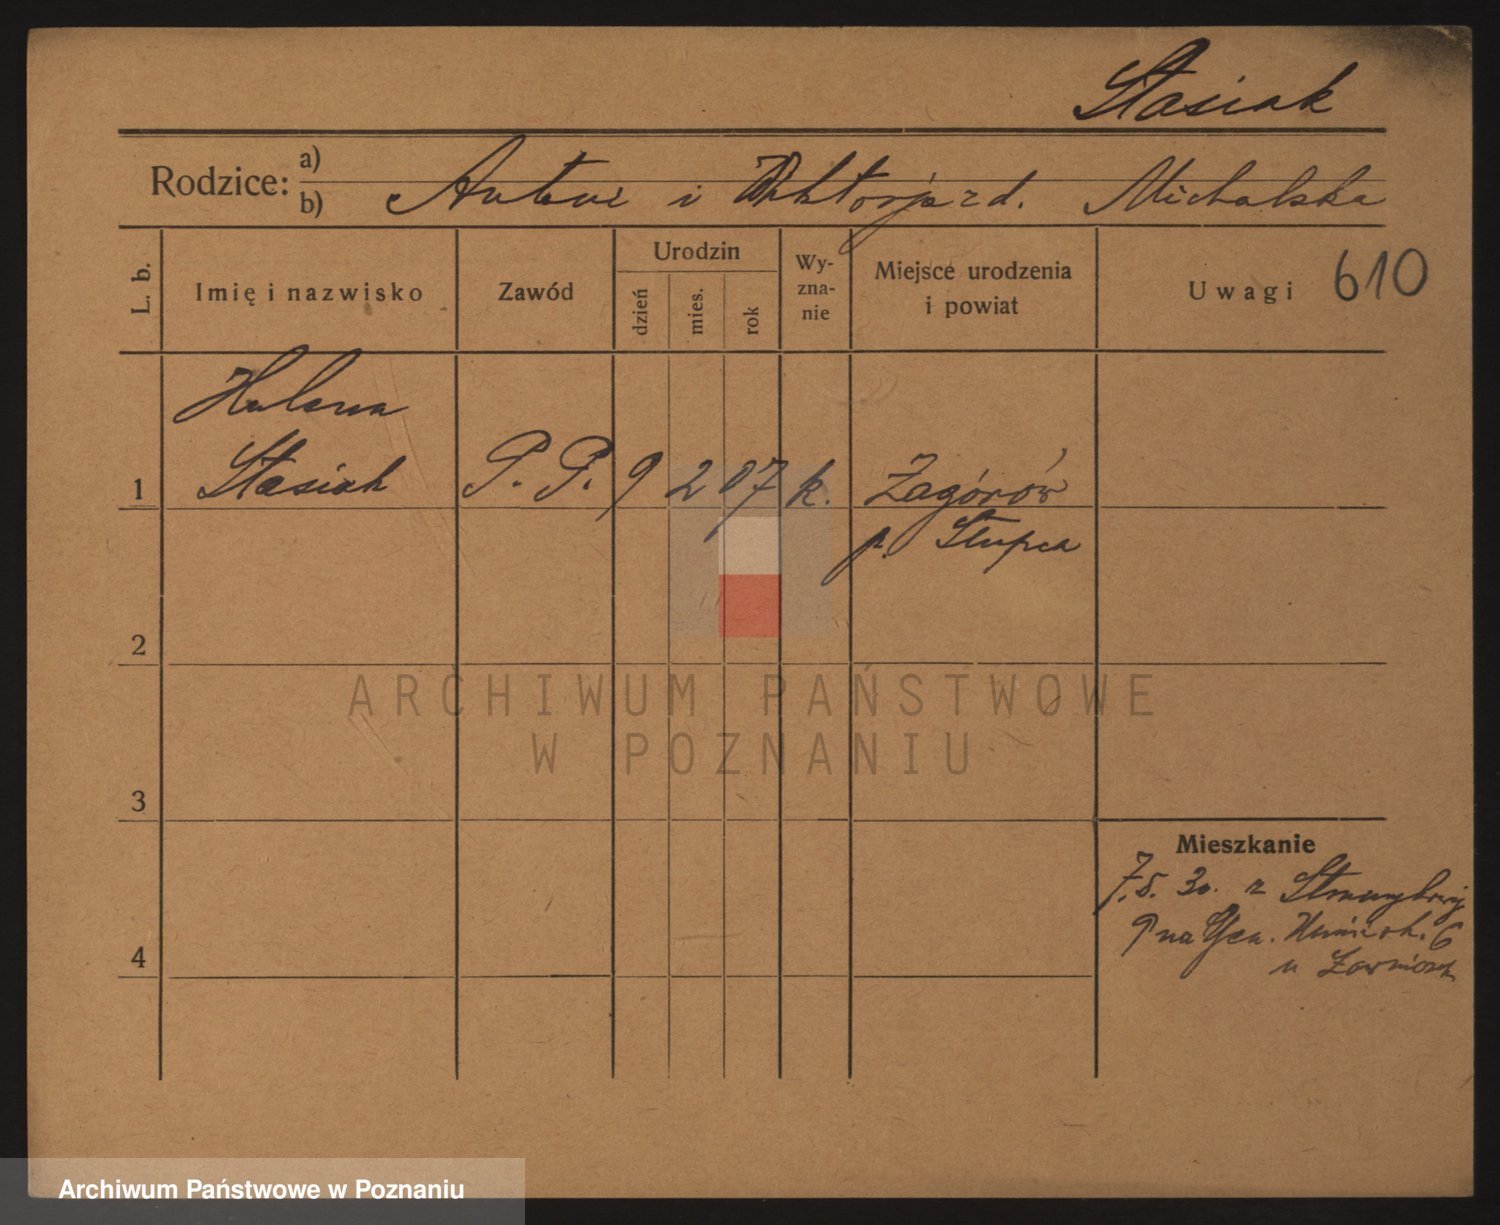 Stasiak
Rodzice: a)
b) Antoni i Wiktorja z d. Michalska
L. b. Imię i nazwisko Zawód Urodzin dzień mies. rok Wy-zna-nie Miejsce urodzenia i powiat Uwagi 610
Helena
1 Stasiak P. P. 9 2 07 k. Zagórów
p. Słupca
2
ARCHIWUM PAŃSTWOWE
W POZNANIU
3
Mieszkanie
7.5. 30. z
9 na 6
4 u
Archiwum Państwowe w Poznaniu